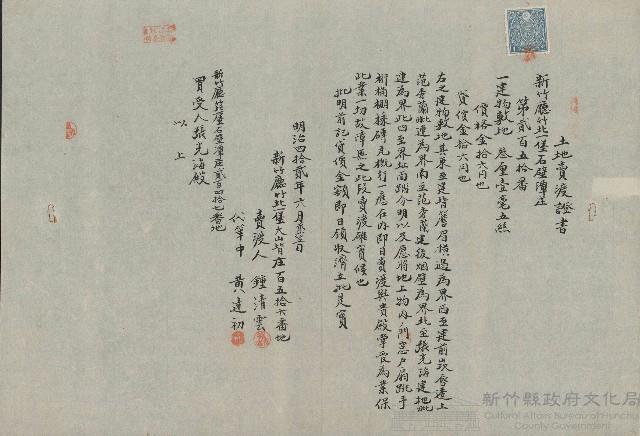 土地賣渡證書
新竹廳竹北一堡石壁潭庄
第貳百五拾番
一建物敷地 叁厘壹毫五絲
價格金拾六円也
賣價金拾六円也
右之建物敷地其東至建背簷眉橫過為界西至建前崁唇透上
范秀蘭毗連為界南至范秀蘭建後烟壁為界北至張光海建地毗
連為界此四至界址面踏分明以及應將地上物內門窓戶扇
桁桷棚椽磚瓦概行一應在內即日賣渡與貴殿掌管為業保
此業一切故障無之此段賣渡確實候也
批明前記賣價金額即日領收濟立批是實
明治四拾貳年六月 日
新竹廳竹北一堡大山背庄百五拾六番地
賣渡人 鍾清雲
代筆中 黃達初
新竹廳竹北一堡石壁潭庄貳百四拾七番地
買受人張光海殿
以上
新竹縣政府文化局
Cultural Affairs Bureau of Hsinchu
County Government